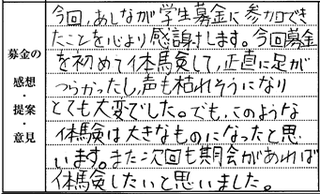 募金の
感想
・
提案
・
意見
今回,あしなが学生募金に参加でき
たことを心より感謝します。今回募金
を初めて体験して,正直に足が
つらかったし,声も枯れそうになり
とても大変でした。でも,このような
体験は大きなものになったと思
います。また次回も期会があれば
体験したいと思いました。